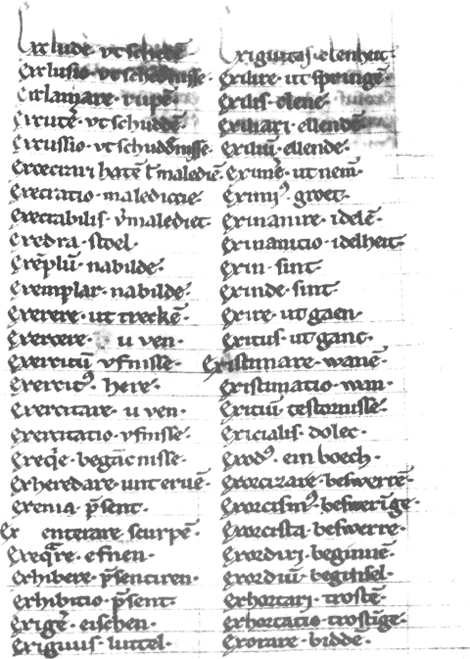 Excludē· vt schedē
Exclusio· vt schednisse·
Exclamare· rupē·
Excutē· vt schuddē·
Excussio· vt schuddnisse·
Execrari hatē ł maledic̄·
Execratio· maledictie·
Execrabilis· v̄malediet·
Exedra· stoel·
Exēplū· nabilde·
Exemplar· nabilde·
Exerere· ut treckē·
Exercere· u ven·
Exercitū· vfnisse·
Exercitꝰ· here·
Exercitare· u ven·
Exercitatio· vfnisse·
Exeqͥe· begācnisse·
Exheredare· unteruē·
Exenia· p̄sent·
Ex enterare scurpē·
Exeqͣre· efnen·
Exhibere· p̄sentiren·
Exhibitio· p̄sent·
Exigē· eischen·
Exiguus· luttel·
Exiguitas· elenheit·
Exilire· ut springē·
Exilis· clene·
Exiliari· ellendē·
Exiliū· ellende·
Eximē· ut nem̄·
Eximiꝰ· groet·
Exinanire· idelē·
Exinanitio· idelheit·
Exin· sint·
Exinde· sint·
Exire· ut gaen·
Exitus· ut ganc·
Existimare· wanē·
Existimatio· wan·
Exitiū· testornisse·
Exicialis· dolec·
Exodꝰ· ein boech·
Exorcizare· beswerē·
Exorcismꝰ· beswerīge·
Exorcista· beswerre·
Exordiri· beginnē·
Exordiū· beginsel·
Exhortari· trostē·
Exhortatio· trostīge·
Exorare· biddē·